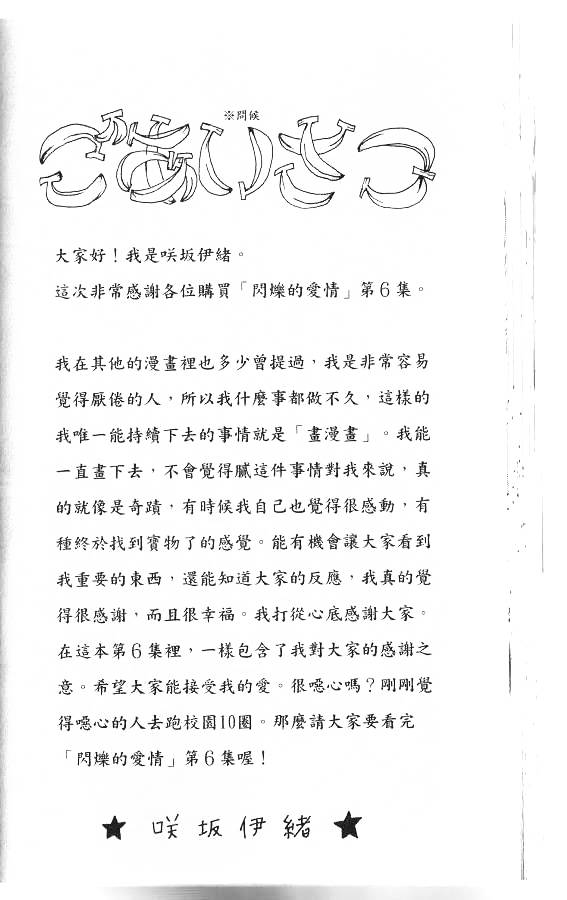 ※問候
ごあいさつ
大家好！我是咲坂伊緒。
這次非常感謝各位購買「閃爍的愛情」第6集。
我在其他的漫畫裡也多少曾提過，我是非常容易
覺得厭倦的人，所以我什麼事都做不久，這樣的
我唯一能持續下去的事情就是「畫漫畫」。我能
一直畫下去，不會覺得膩這件事情對我來說，真
的就像是奇蹟，有時候我自己也覺得很感動，有
種終於找到寶物了的感覺。能有機會讓大家看到
我重要的東西，還能知道大家的反應，我真的覺
得很感謝，而且很幸福。我打從心底感謝大家。
在這本第6集裡，一樣包含了我對大家的感謝之
意。希望大家能接受我的愛。很噁心嗎？剛剛覺
得噁心的人去跑校園10圈。那麼請大家要看完
「閃爍的愛情」第6集喔！
★ 咲坂伊緒 ★